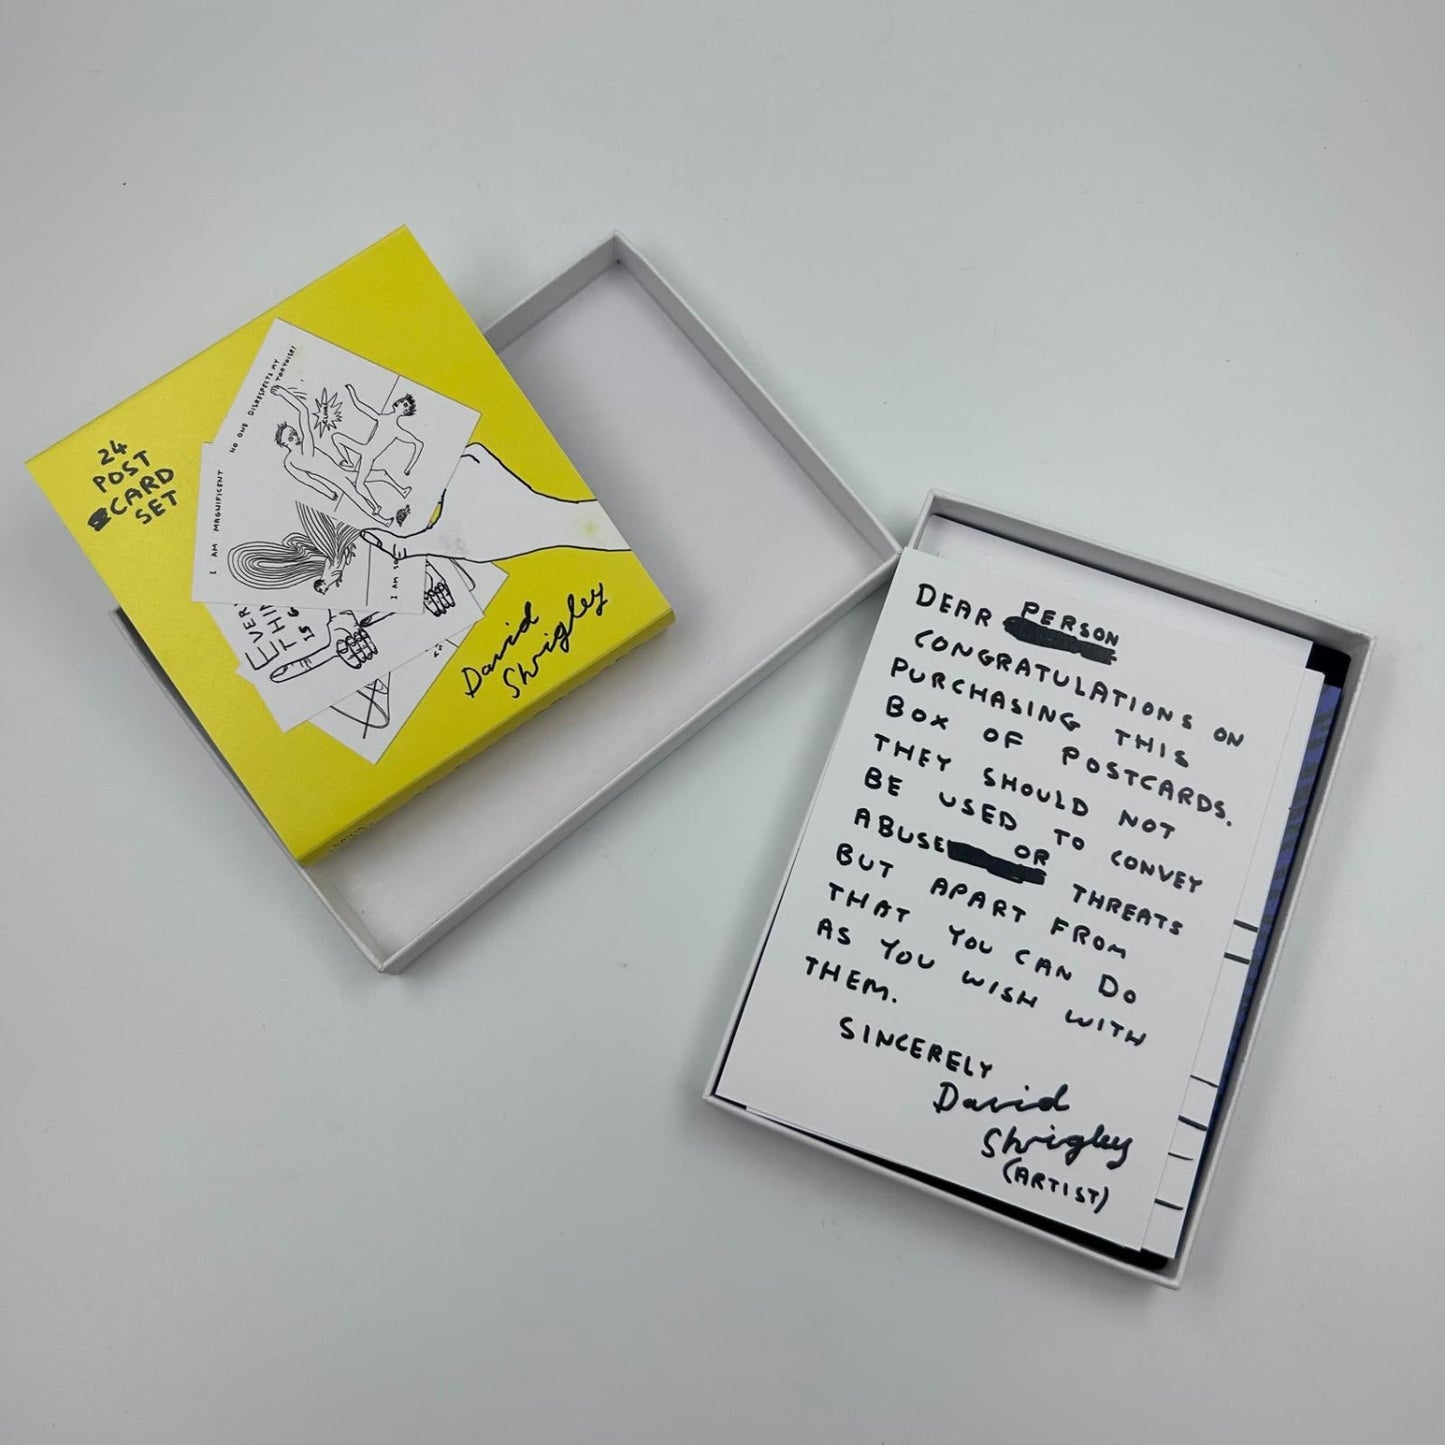 24
POST
CARD
SET
NO ONE DISRESPECTS MY
TORTOISE!
I AM MAGNIFICENT
I AM SO
EVER
THIN
IS G
David
Shrigley
DEAR PERSON
CONGRATULATIONS ON
PURCHASING THIS
BOX OF POSTCARDS.
THEY SHOULD NOT
BE USED TO CONVEY
ABUSE OR THREATS
BUT APART FROM
THAT YOU CAN DO
AS YOU WISH WITH
THEM.
SINCERELY
David
Shrigley
(ARTIST)